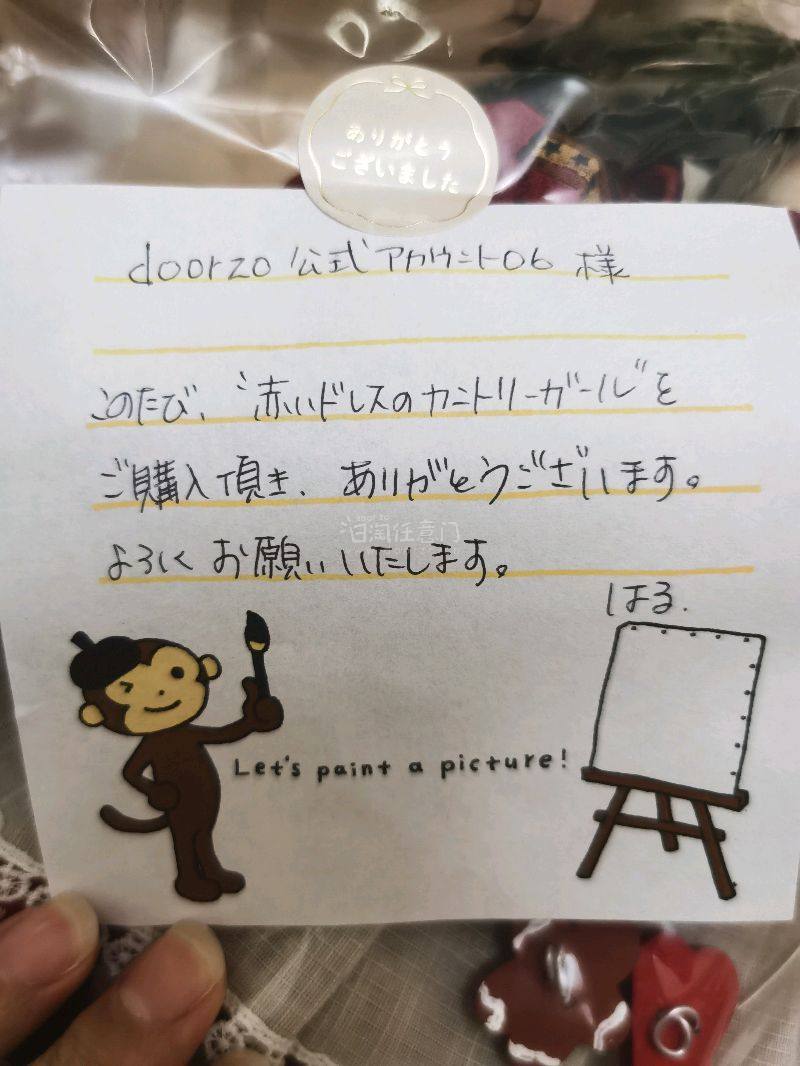 ありがとう
ございました
doorzo 公式アカウント06 様
このたび、“赤いドレスのカントリーガール”を
ご購入頂き、ありがとうございます。
日淘任意门
よろしくお願いいたします。
はる.
Let's paint a picture!